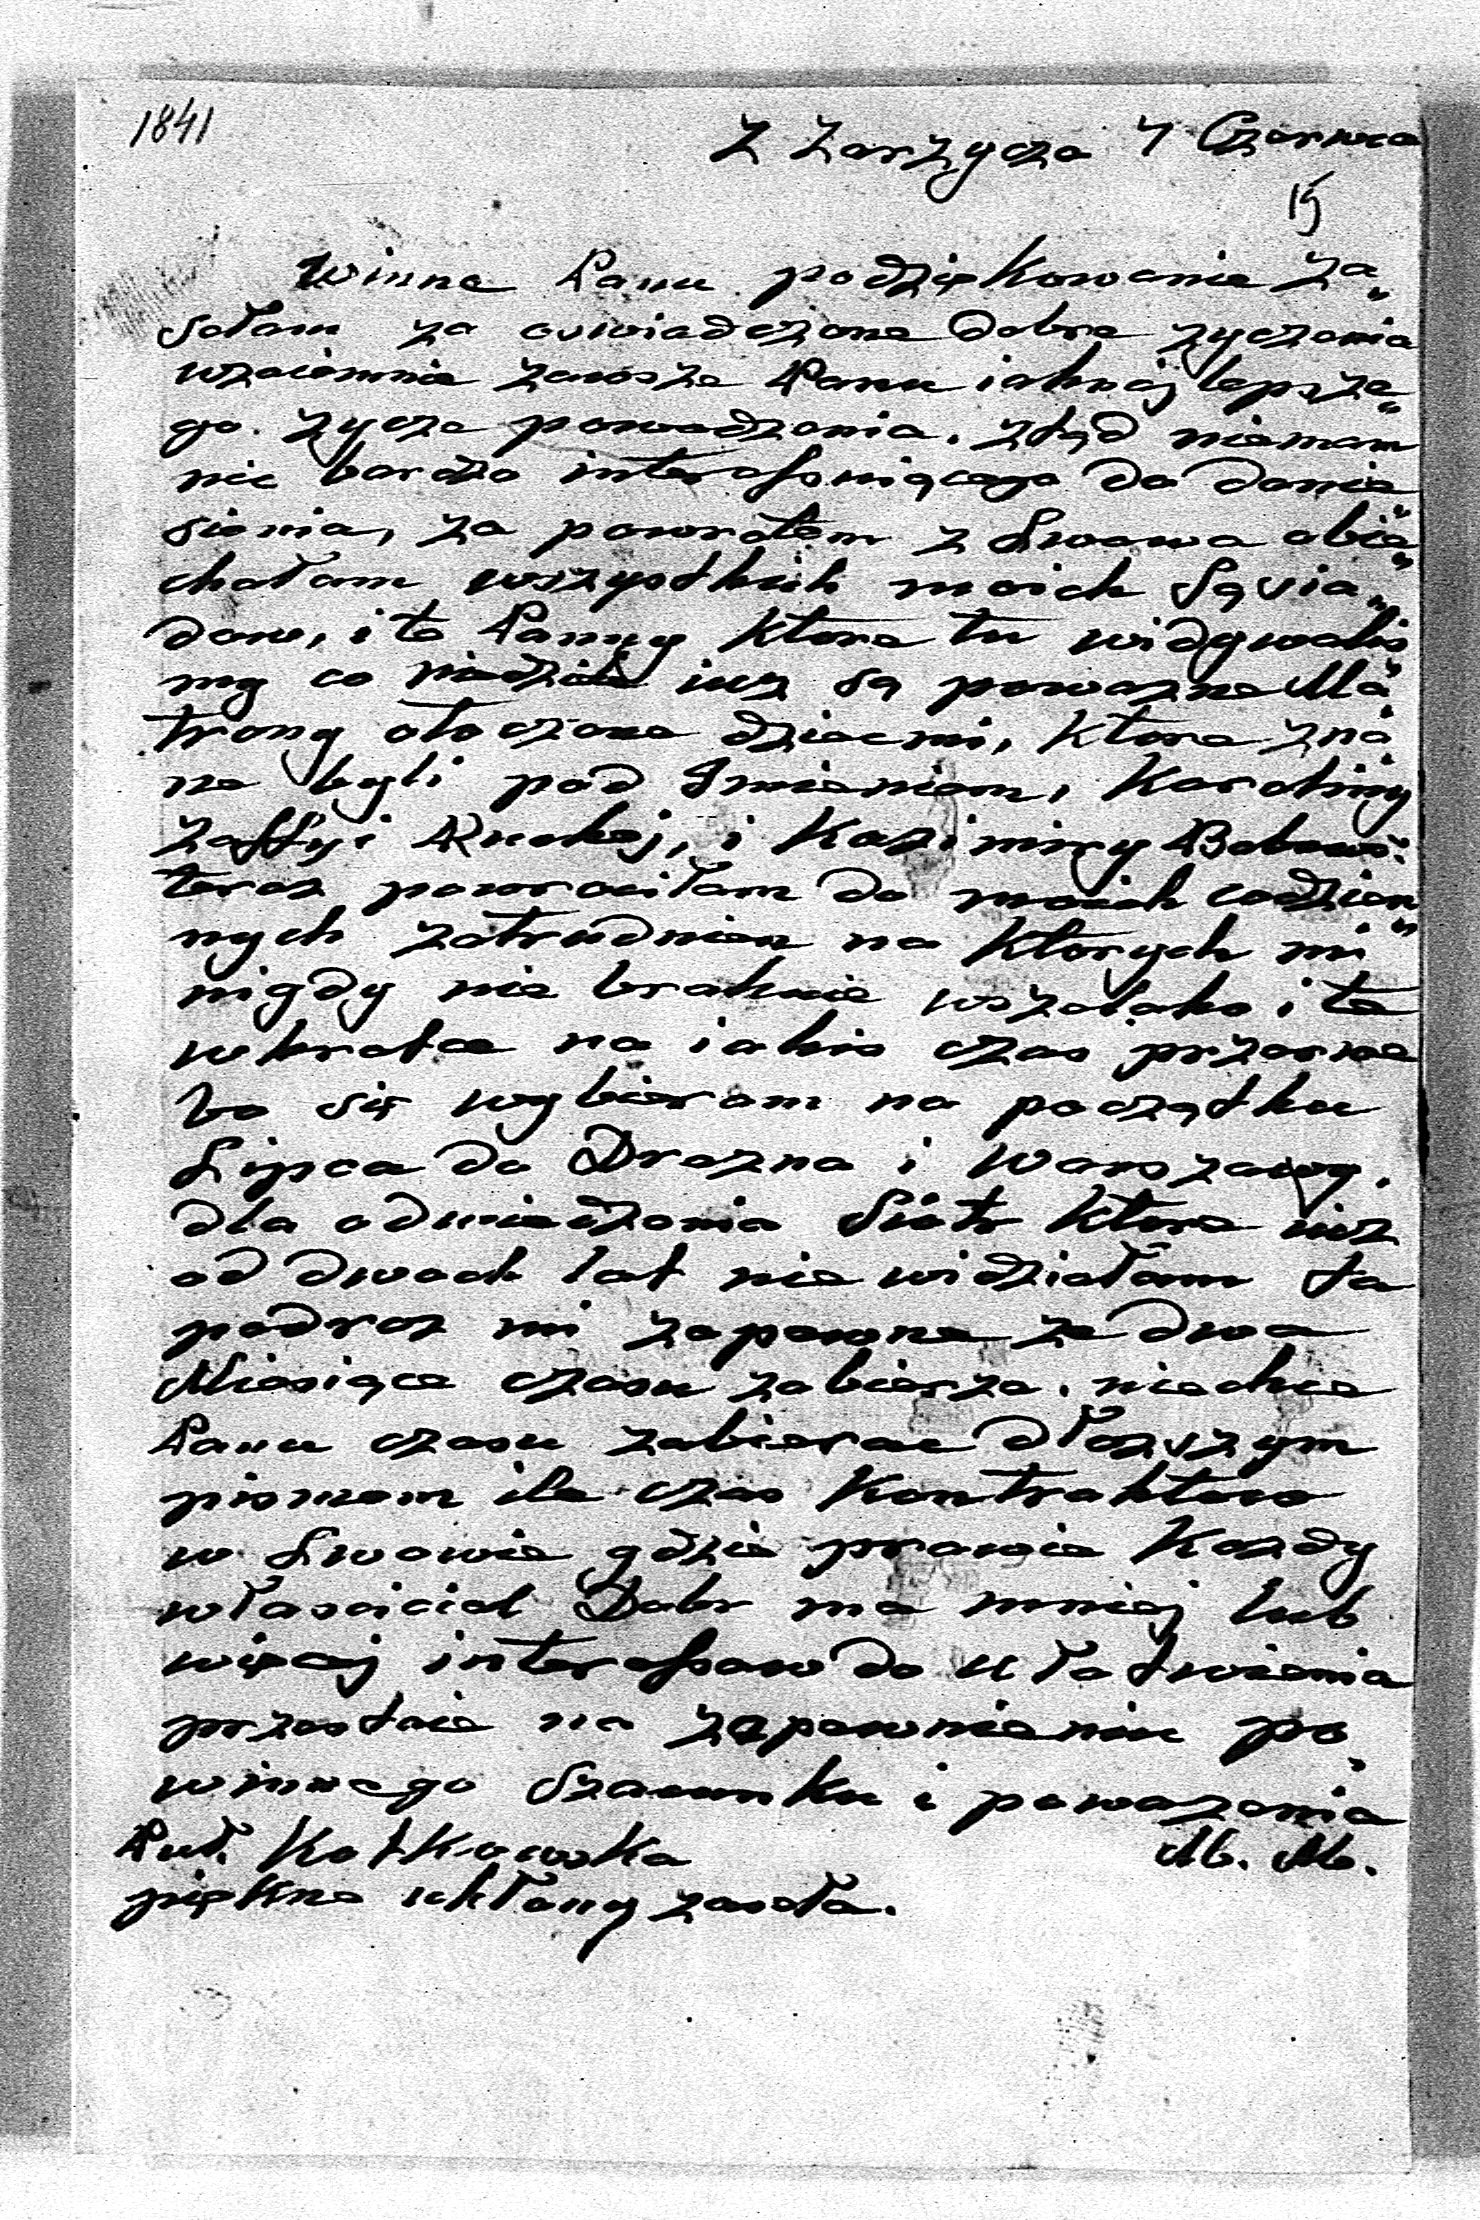 1841
Z Zarzycza 7 Czerwca
15
winne Panu podziękowanie za„
sełam za oswiadczone dobre zyczenia
wzaiemnie zawsze Panu iaknaj lepsze„
go zycze powodzenia. ztąd niemam
nic bardzo interessuiącego do donie„
sienia, za powrotem z Lwowa obie„
chałam wszystkich moich Sąsia„
dow, i te Panny ktore tu widywalis
my co niedziela iusz są powazne Ma„
trony otoczone dziecmi, ktore zna„
ne byli pod Imieniem, Karoliny
Zoffyi Ruckej, i Kazimiry
teraz powrocilam do moich codzien„
nych zatrudnien na ktorych mi
nigdy nie braknie wszelako i te
wkrotce na iakis czas przerwe
bo się wybieram na początku
Lipca do Drezna i Warszawy.
dla odwiedzenia Siostr ktore iusz
od dwoch lat nie widziałam ta
podrosz mi zapewne ze dwa
Miesiące czasu zabierze. niechce
Panu czasu zabierac dłoszszym
pismem ile czas Kontraktow
w Lwowie gdzie prawie Kazdy
własciciel Dobr ma mniej lub
więcej interessow do ułatwienia
przestaie na zapewnieniu po„
winnego Szacunku i powazenia
M. M.
Puł. Kotkowska
piękne ukłony zaseła.